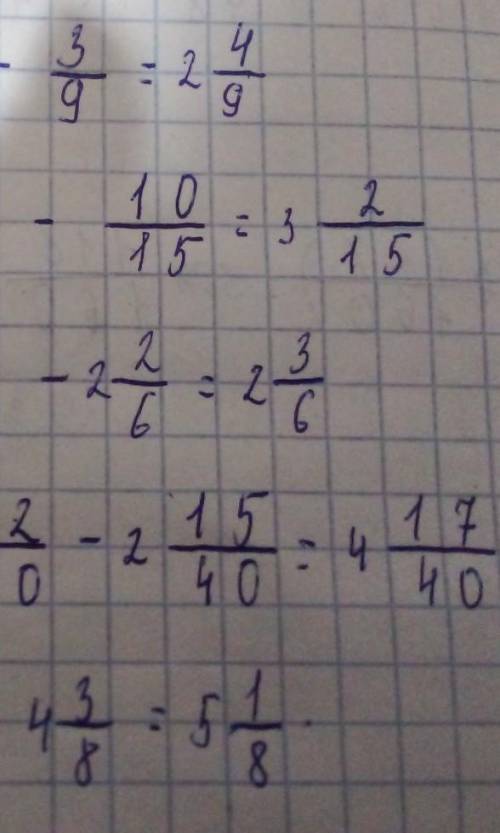 - 3/9 = 2 4/9
- 10/15 = 3 2/15
- 2 2/6 = 2 3/6
2/0 - 2 15/40 = 4 17/40
4 3/8 = 5 1/8